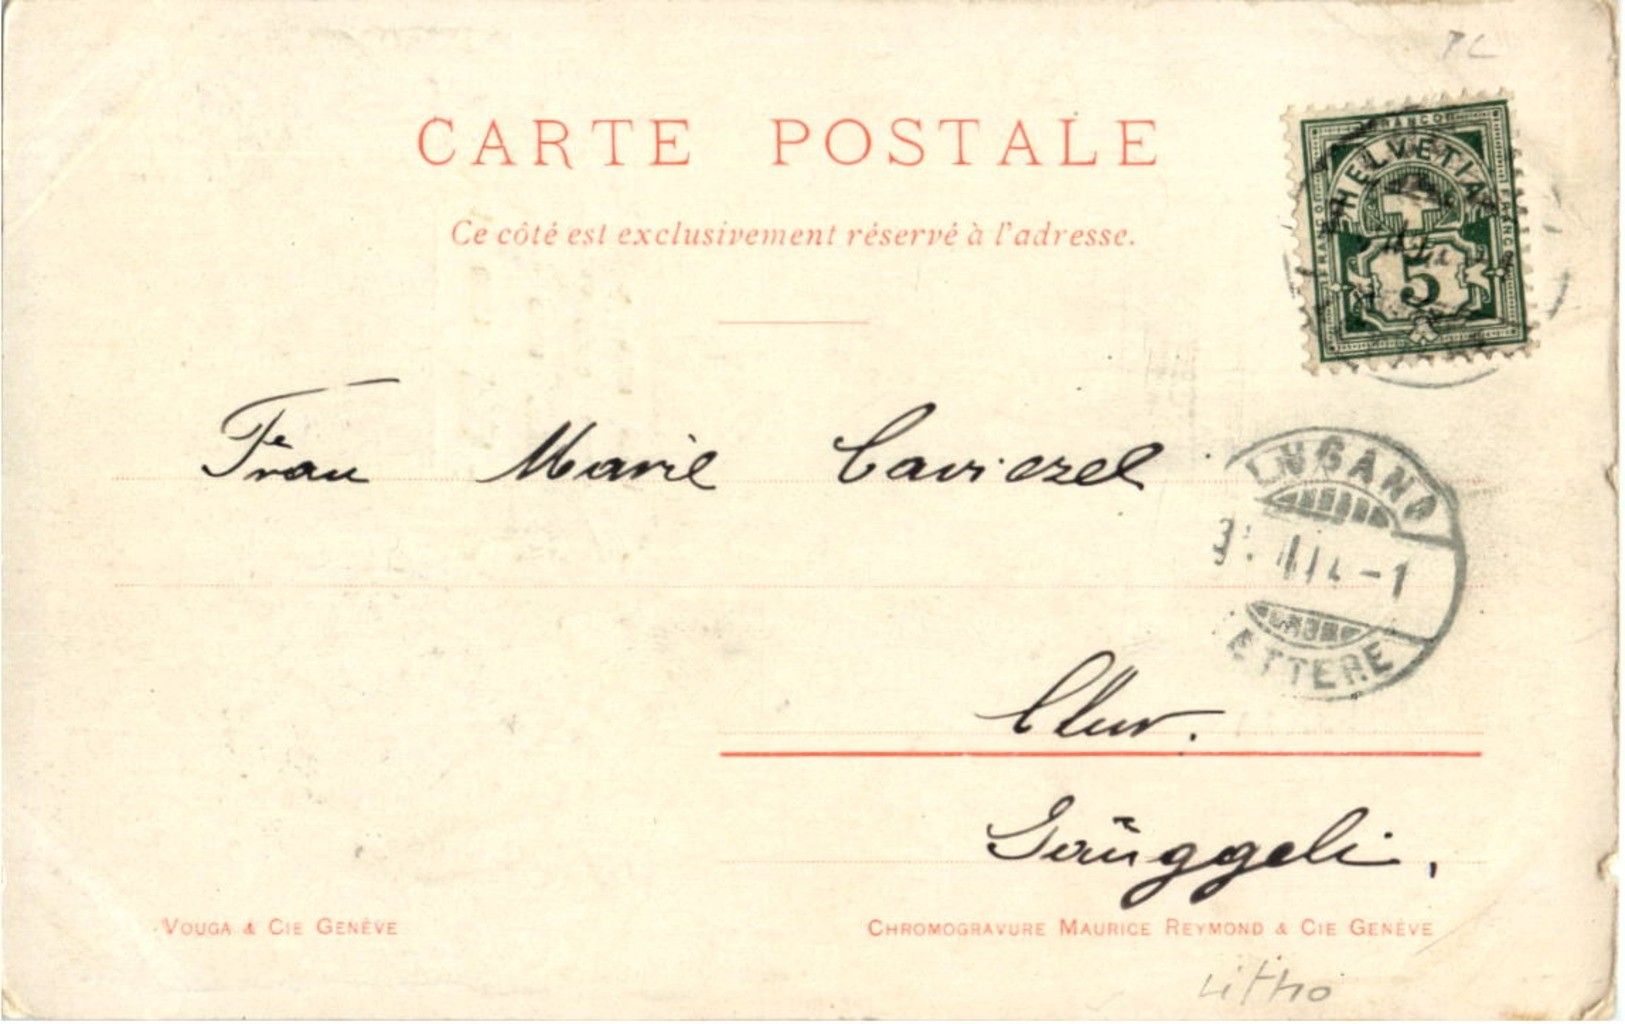 CARTE POSTALE
Ce côté est exclusivement réservé à l'adresse.
FRANCO
HELVETIA
FRANCO
FRANCO
5
Frau Marie Caviezel
LUGANO
ETTERE
Chur.
Gäuggeli,
VOUGA & CIE GENÈVE
CHROMOGRAVURE MAURICE REYMOND & CIE GENÈVE
Litho